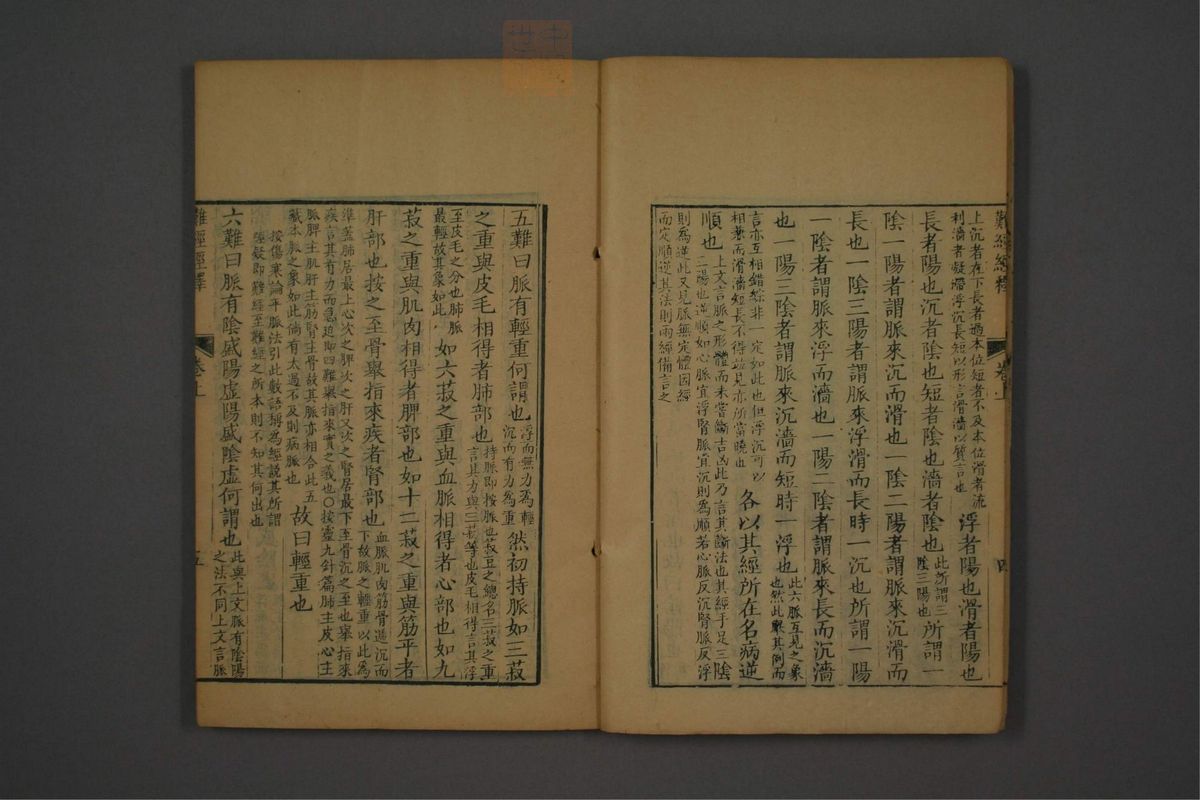 難經經釋
卷上
四
上沉者在下長者過本位短者不及本位滑者流
利濇者凝滯浮沉長短以形言滑濇以質言也
浮者陽也滑者陽也
長者陽也沉者陰也短者陰也濇者陰也
此所謂三
陰三陽也
所謂一
陰一陽者謂脈來沉而滑也一陰二陽者謂脈來沉滑而
長也一陰三陽者謂脈來浮滑而長時一沉也所謂一陽
一陰者謂脈來浮而濇也一陽二陰者謂脈來長而沉濇
也一陽三陰者謂脈來沉濇而短時一浮也
此六脈互見之象
也然此舉其例而
言亦互相錯綜非一定如此也但浮沉可以
相兼而滑濇短長不得並見亦所當曉也
各以其經所在名病逆
順也
上文言脈之形體而未嘗斷吉凶此乃言其斷法也其經手足三陰
三陽也逆順如心脈宜浮腎脈宜沉則為順若心脈反沉腎脈反浮
則為逆此又見脈無定體因經
而定順逆其法則兩經備言之
五難曰脈有輕重何謂也
浮而無力為輕
沉而有力為重
然初持脈如三菽
之重與皮毛相得者肺部也
持脈即按脈也菽豆之總名三菽之重
言其力與三菽等也皮毛相得言其浮
至皮毛之分也肺脈
最輕故其象如此
如六菽之重與血脈相得者心部也如九
菽之重與肌肉相得者脾部也如十二菽之重與筋平者
肝部也按之至骨舉指來疾者腎部也
血脈肌肉筋骨遞沉而
下故脈之輕重以此為
準蓋肺居最上心次之脾次之肝又次之腎居最下至骨沉之至也舉指來
疾言其有力而急迫即四難舉指來實之義也○按靈九針篇肺主皮心主
脈脾主肌肝主筋腎主骨故其脈亦相合此五
藏本脈之象如此倘有太過不及則病脈也
故曰輕重也
按傷寒論平脈法引此數語稱為經說其所謂
經疑即難經至難經之所本則不知其何出也
六難曰脈有陰盛陽虛陽盛陰虛何謂也
此與上文脈有陰陽
之法不同上文言脈
難經經釋
卷上
五